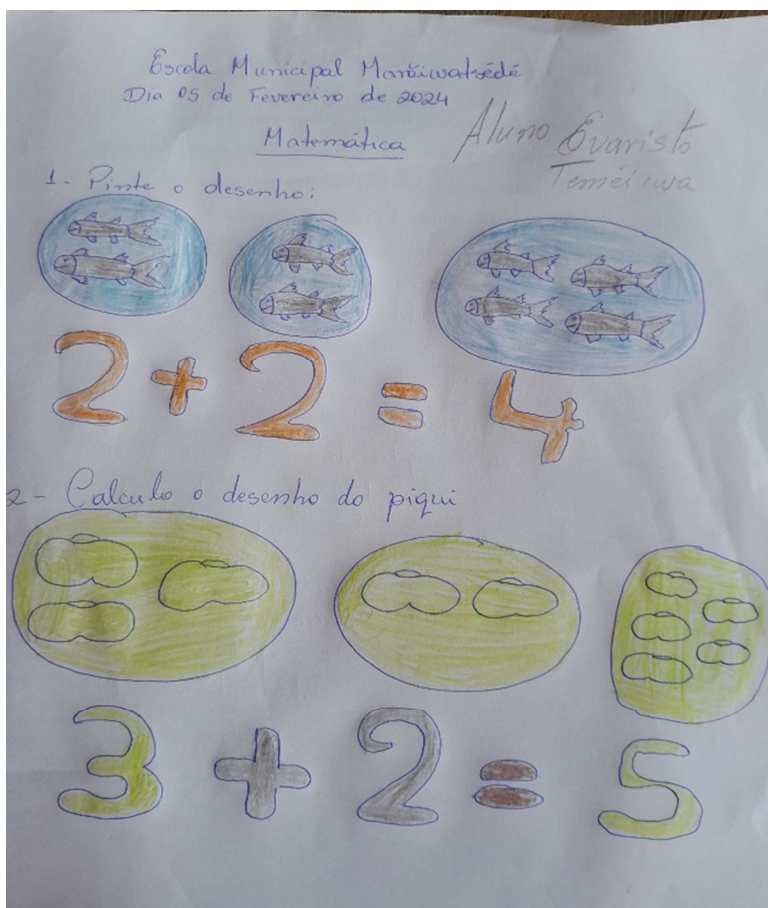 Escola Municipal Marãiwatsédé
Dia 05 de Fevereiro de 2024
Matemática
Aluno Evaristo
Teméiwa
1- Pinte o desenho:
2 + 2 = 4
2- Calculo o desenho do piqui
3 + 2 = 5